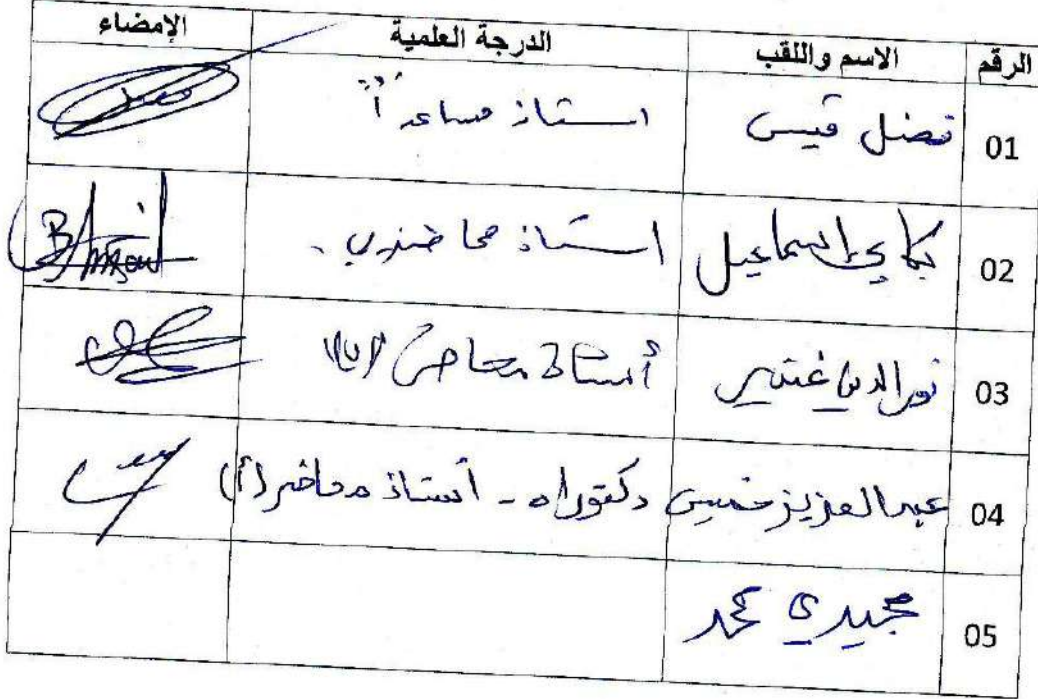 الرقم الاسم واللقب الدرجة العلمية الإمضاء
01 فضل قيس استاذ مساعد "أ"
02 إسماعيل استاذ محاضر ب
03 نور الدين أستاذ محاضر
04 عبد العزيز خميس دكتوراه - أستاذ محاضر (أ)
05 مجيدي محمد